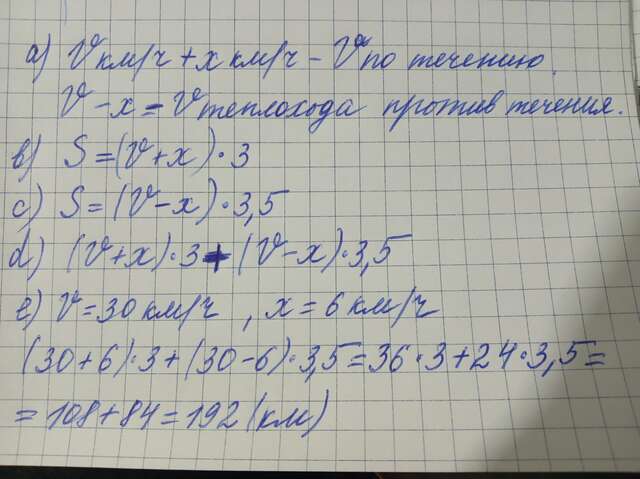 а) V км/ч + x км/ч - V по течению.
V - x = V теплохода против течения.
в) S = (V + x) · 3
c) S = (V - x) · 3,5
d) (V + x) · 3 + (V - x) · 3,5
e) V = 30 км/ч , x = 6 км/ч
(30 + 6) · 3 + (30 - 6) · 3,5 = 36 · 3 + 24 · 3,5 =
= 108 + 84 = 192 (км)